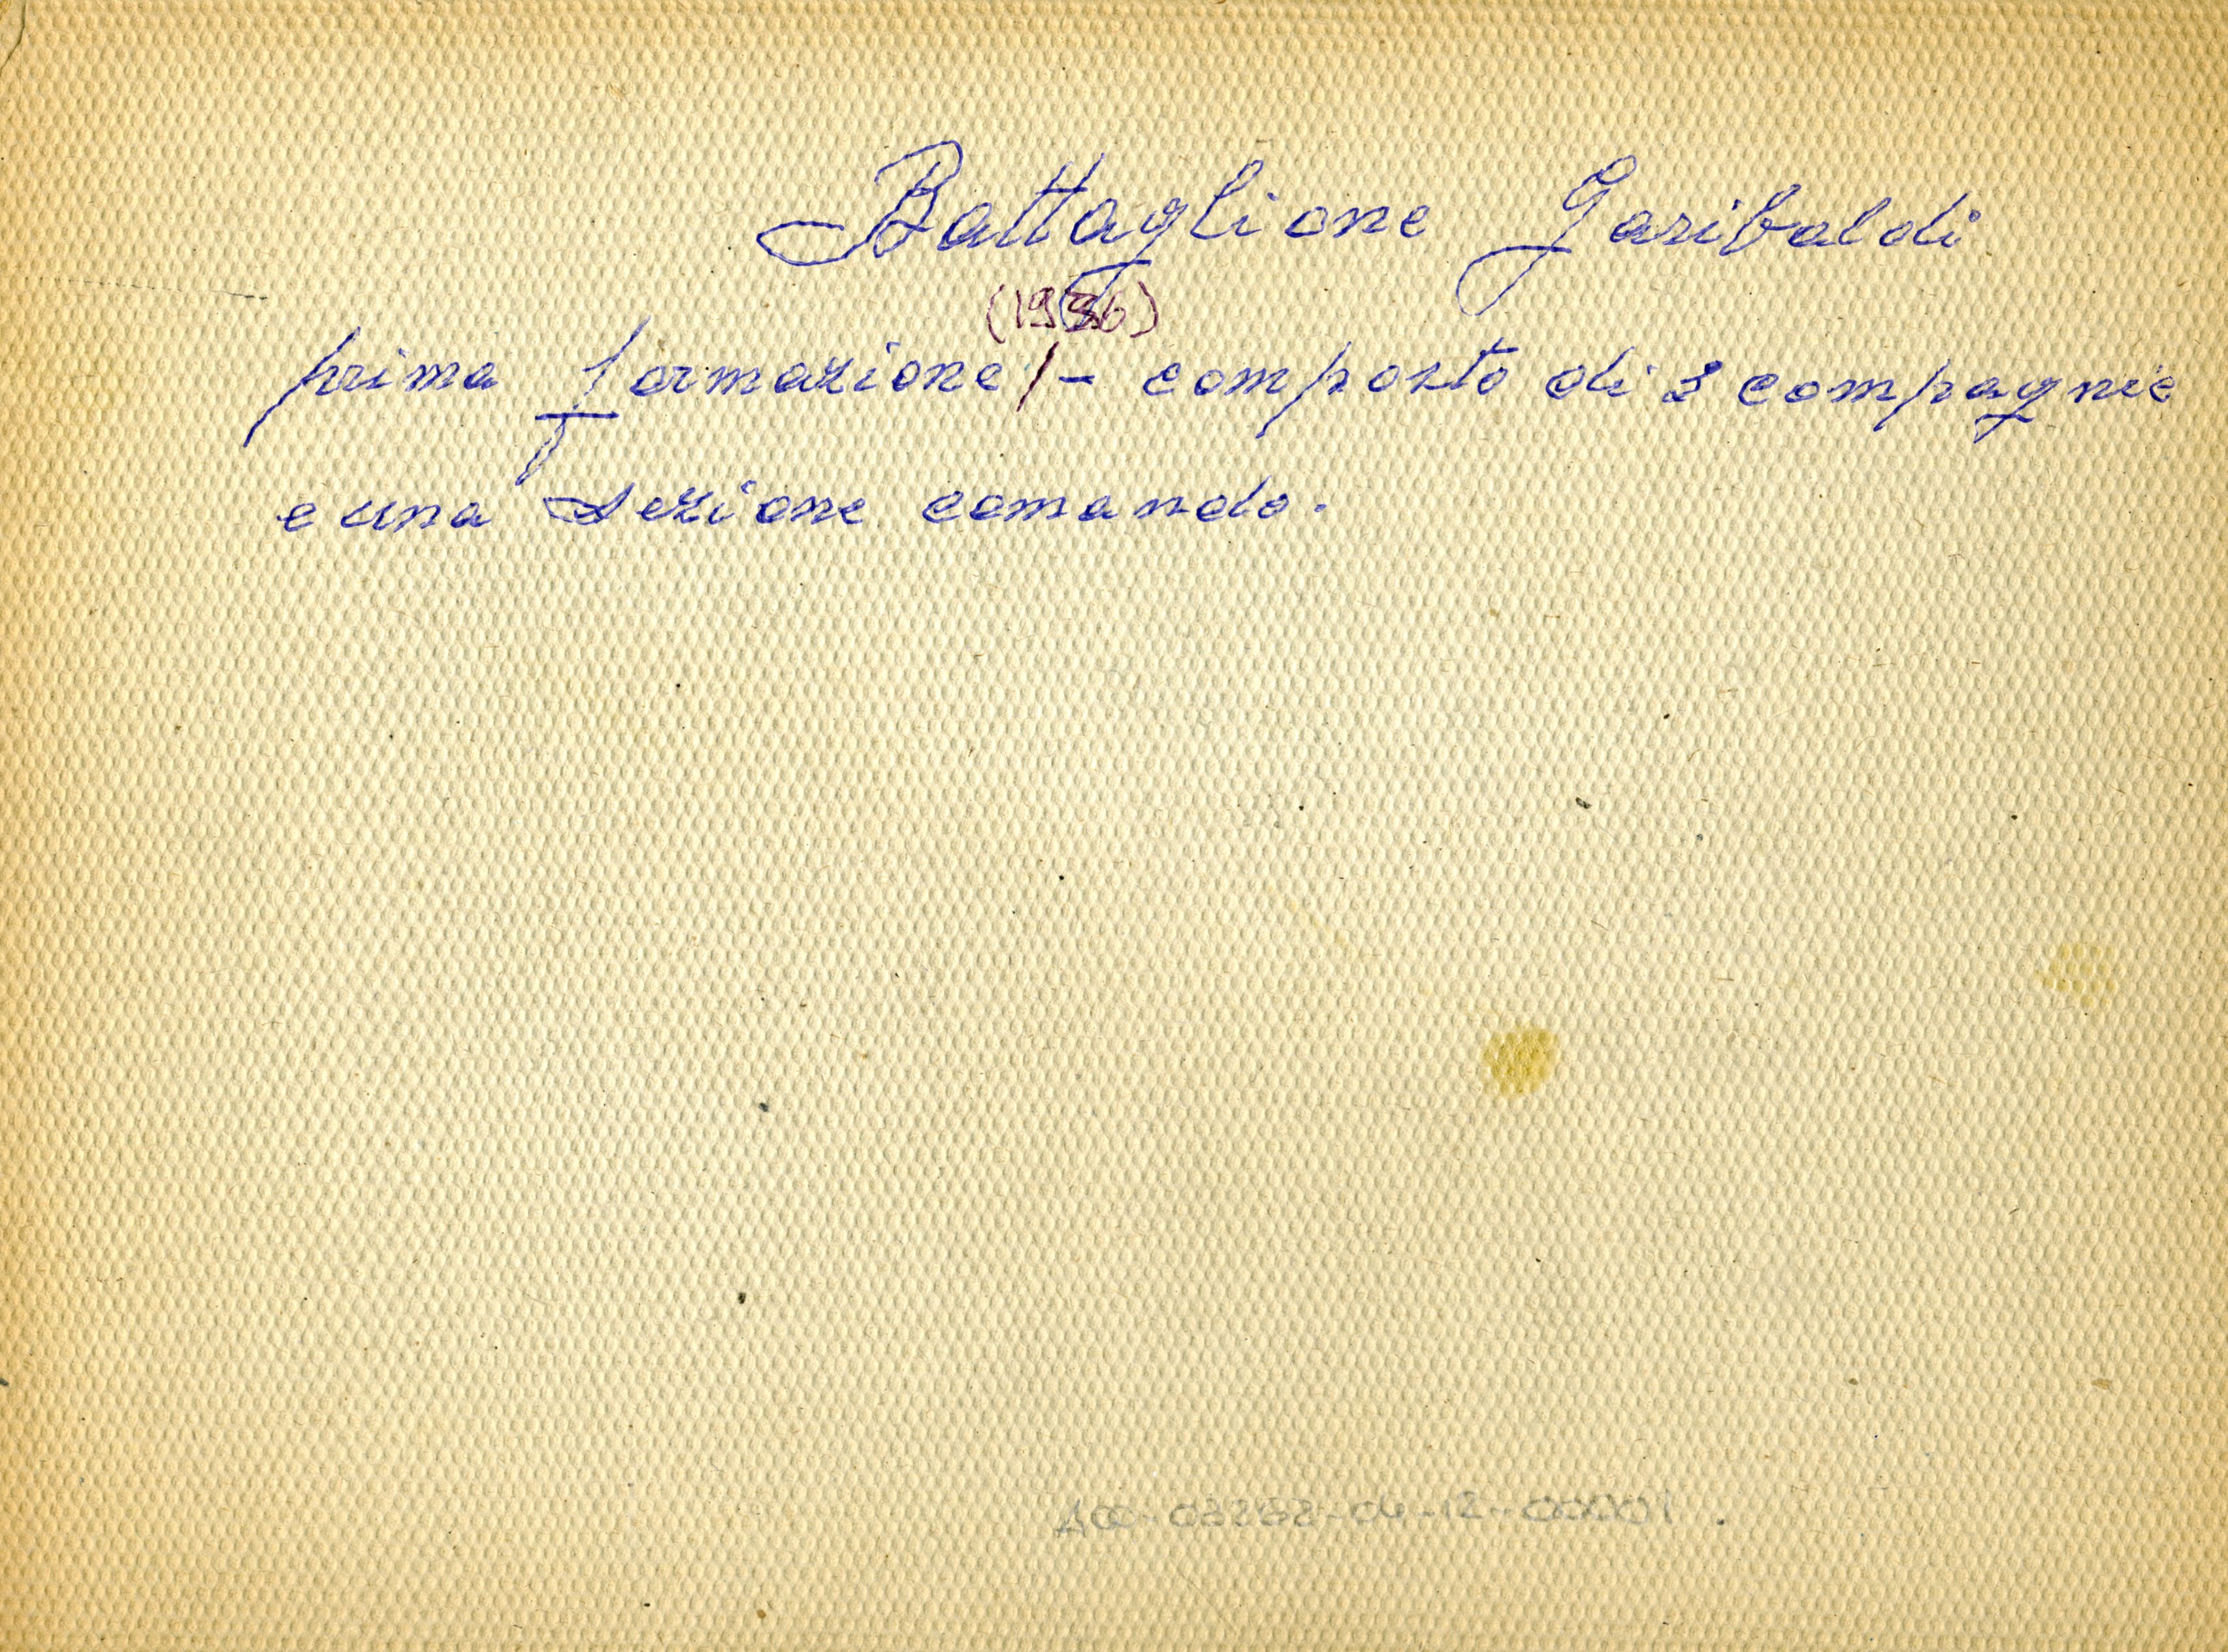 Battaglione Garibaldi
(1936)
prima formazione / - composto di 3 compagnie
e una sezione comando.